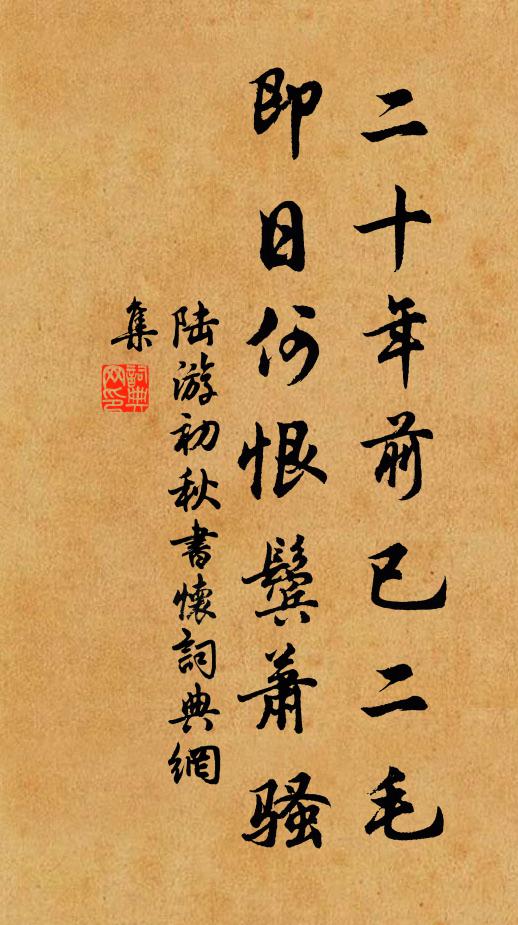 二十年前已二毛
即日何恨鬓萧骚
陆游初秋書懷詞典網
集
詞典
網印